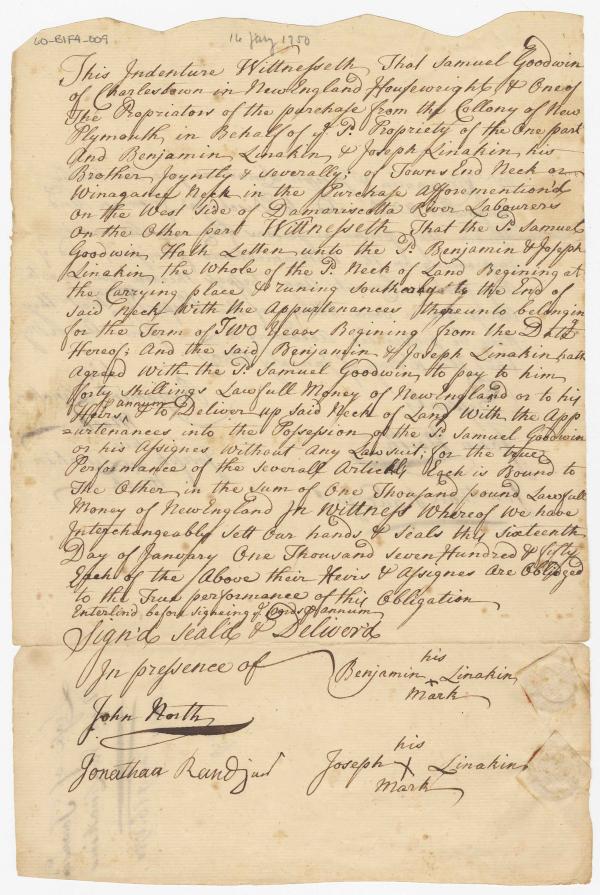 60-B1F4-009
16 Jany 1750
This Indenture Wittnesseth That Samuel Goodwin
of Charlestown in New England Housewright & One of
The Propriators of the purchase from the Colony of New
Plymouth in Behalf of ye Sd. Propriety of the One part
And Benjamin Linakin & Joseph Linakin his
Brother Joyntly & Severally; of Towns End Neck or
Winagance Neck in the Purchase Afforemention'd
On the West Side of Damariscotta River Labourers
On the Other part Wittnesseth That the Sd. Samuel
Goodwin Hath Letten unto the Sd. Benjamin & Joseph
Linakin the Whole of the Sd. Neck of Land Begining at
the Carrying place & runing Southward to the End of
Said Neck With the Appurtenances thereunto belongin
for the Term of Two Years Begining from the Date
Hereof; And the Said Benjamin & Joseph Linakin hath
Agreed With the Sd. Samuel Goodwin to pay to him
forty Shillings Lawfull Money of New England or to his
Pr annum
Heirs ^ & to Deliver up Said Neck of Land With the App
=urtenances into the Possession of the Sd. Samuel Goodwin
or his Assignes Without Any Lawsuit; for the true
Performance of the Severall Articles Each is Bound to
The Other in the Sum of One Thousand pound Lawfull
Money of New England In Wittness Whereof We have
Interchangeably Sett Our hands & Seals this Sixteenth
Day of January One Thousand Seven Hundred & fifty
Each of the Above their Heirs & Assignes Are Oblidged
to the True performance of this Obligation
Enterlind before Signeing ye Words Pr annum
Sign'd Seal'd & Deliver'd
In presence of
his
Benjamin x Linakin
Mark
John North
Jonathan Rand junr
his
Joseph X Linakin
Mark